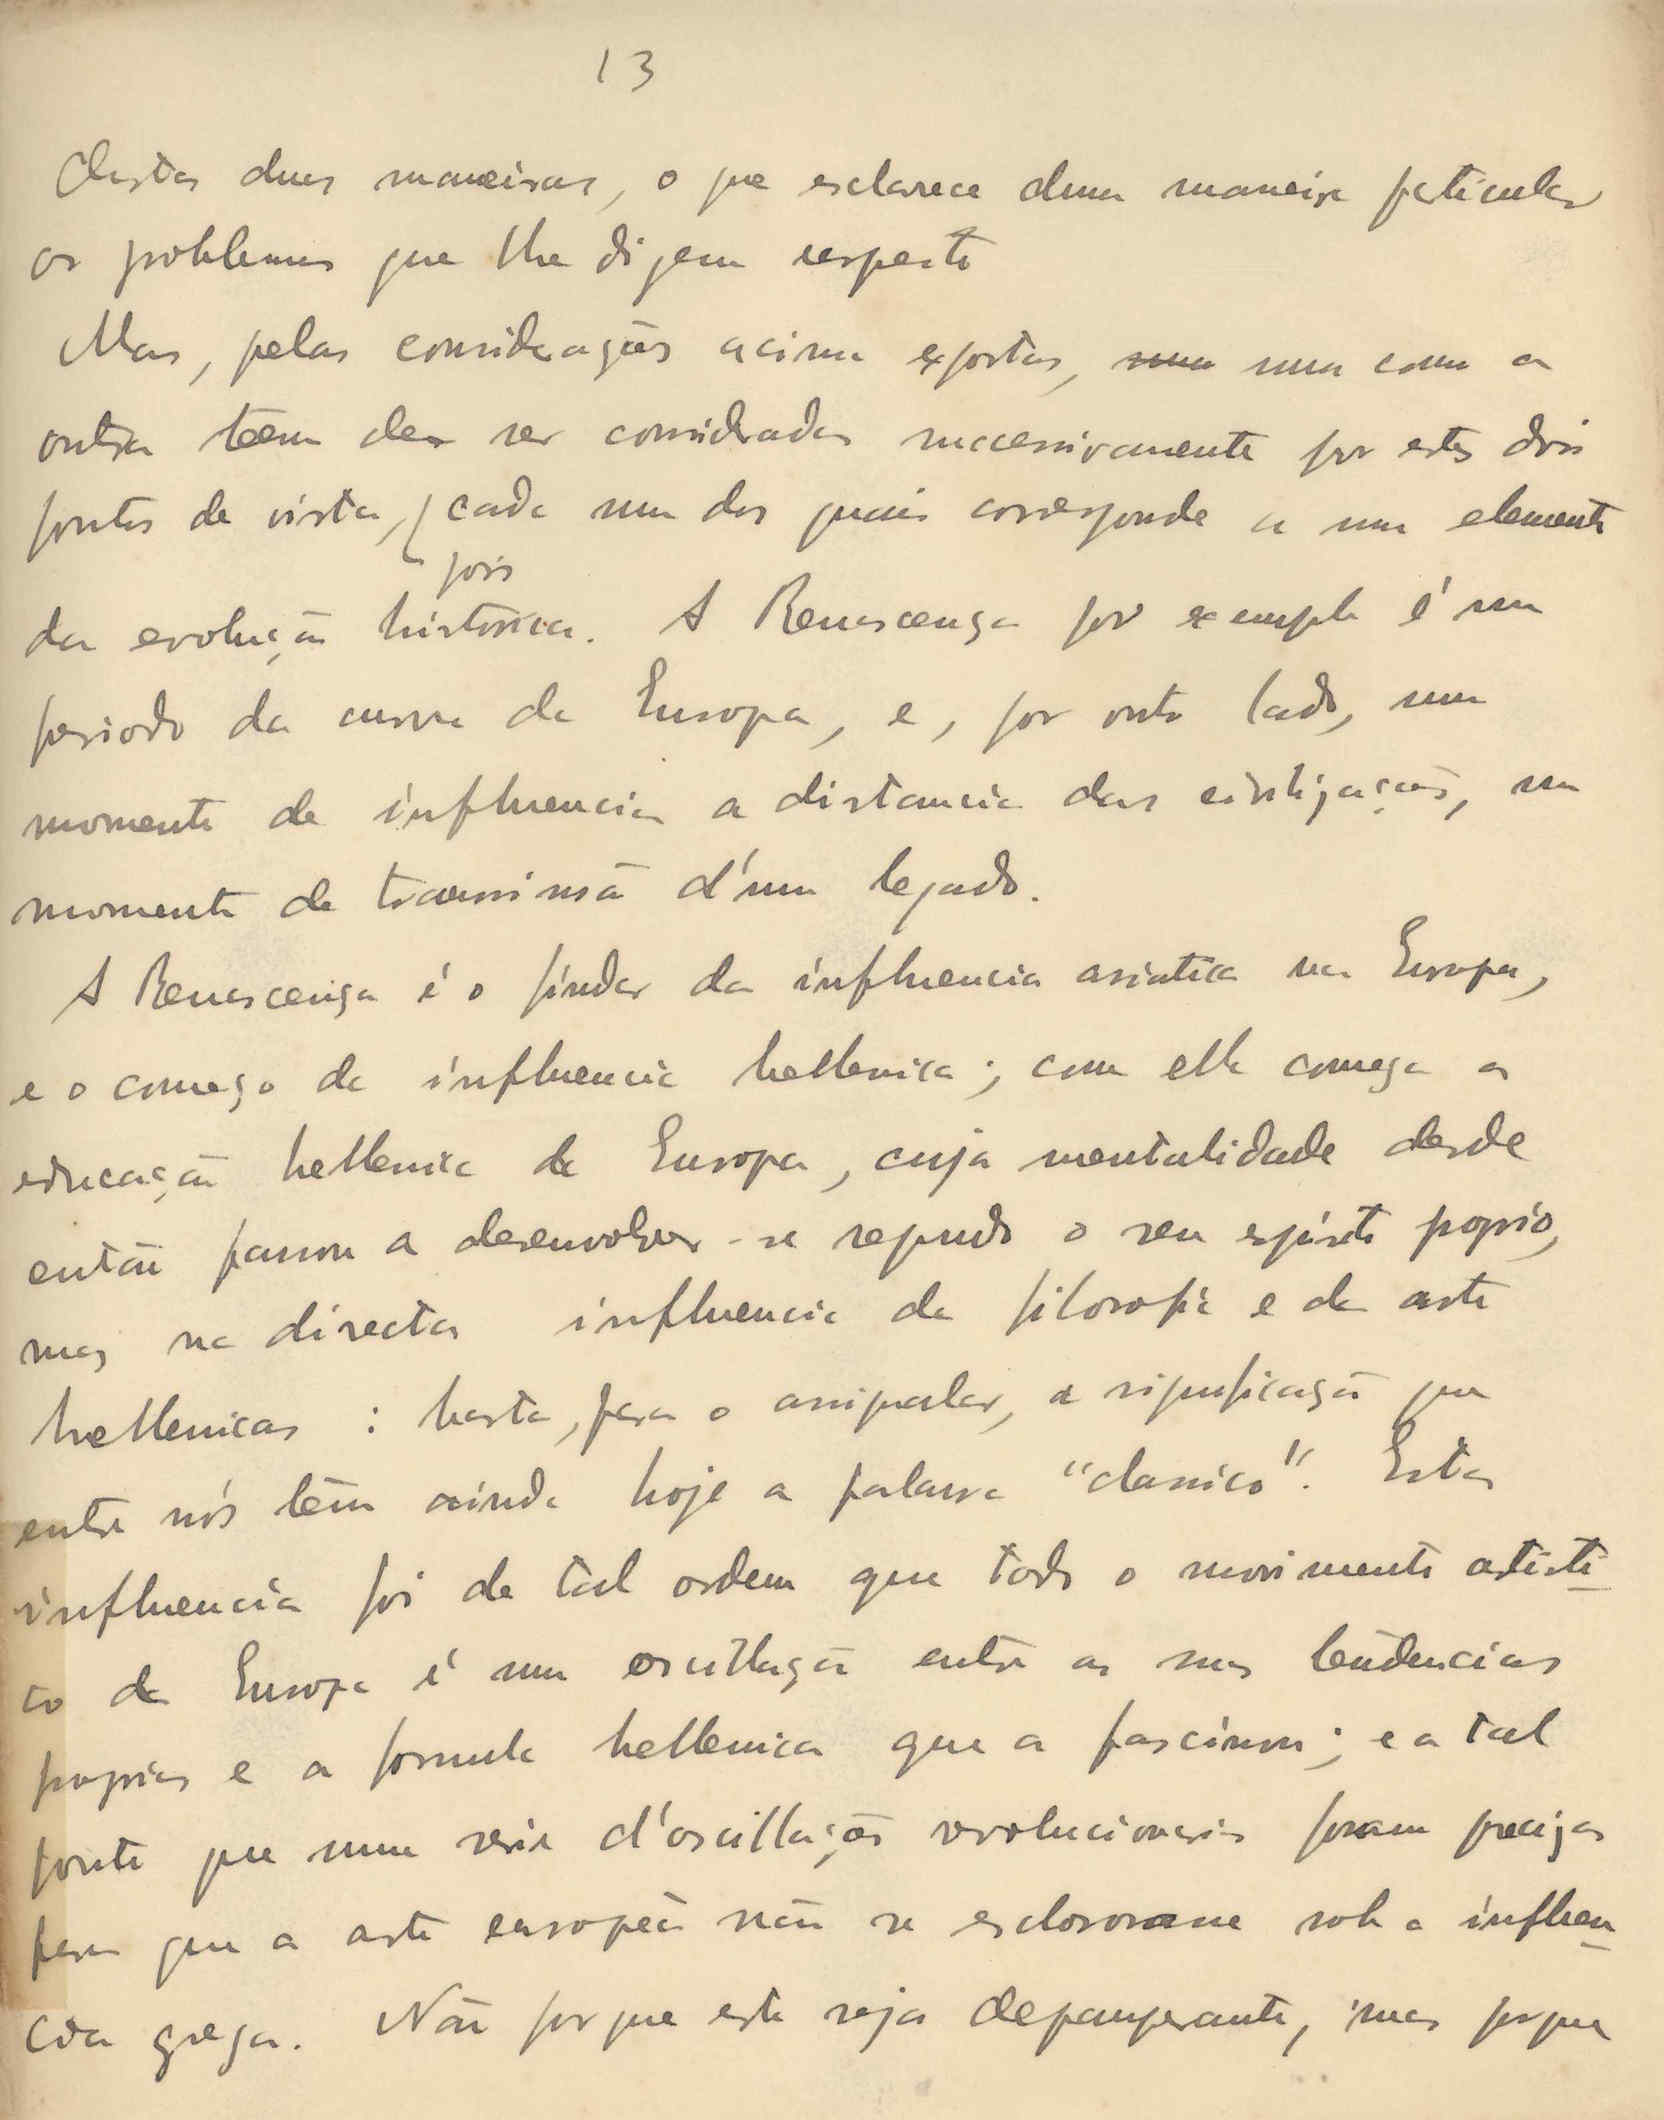 13
destas duas maneiras, o que esclarece duma maneira particular
os problemas que lhe dizem respeito
Mas, pelas considerações acima expostas, uma como a
outra teem de ser consideradas successivamente por estes dois
pontos de vista, cada um dos quaes corresponde a um elemento
pois
da evolução historica. A Renascença por exemplo é um
periodo da curva da Europa, e, por outro lado, um
momento de influencia a distancia das civilizações, um
momento de transmissão d'um legado.
A Renascença é o findar da influencia asiatica na Europa,
e o começo da influencia hellenica; com ella começa a
educação hellenica da Europa, cuja mentalidade desde
então passou a desenvolver-se segundo o seu espirito proprio,
mas na directa influencia da filosofia e da arte
hellenicas: basta, para o assignalar, a significação que
entre nós tem ainda hoje a palavra "classico". Esta
influencia foi de tal ordem que todo o movimento artisti-
co da Europa é uma oscillação entre as suas tendencias
proprias e a formula hellenica que a fascinou; e a tal
ponto que uma serie d'oscillações revolucionarias foram precizas
para que a arte europêa não se esclorosasse sob a influen-
cia grega. Não porque esta seja depauperante, mas porque